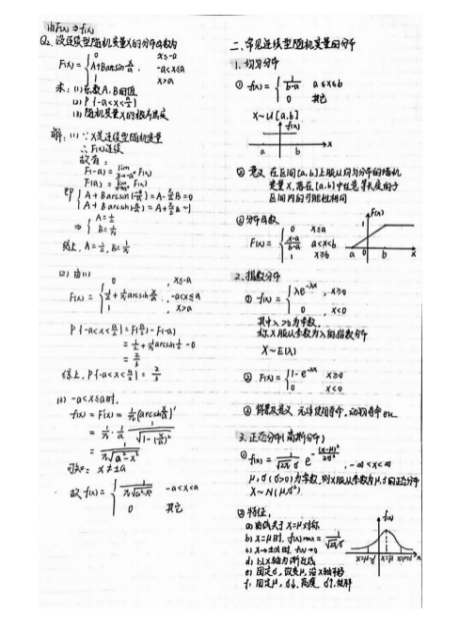 由F(x) ⇒ f(x)
Q2. 设连续型随机变量X的分布函数为
F(x) = { 0 x≤-a
A+Barcsin x/a , -a<x≤a
1 x>a
求: (1) 系数A、B的值
(2) P{-a<x<a/2}
(3) 随机变量X的概率密度
解: (1) ∵ X是连续型随机变量
∴ F(x)连续
故有:
F(-a) = lim F(x)
F(a) = lim F(x)
即 { A + Barcsin(-a/a) = A - π/2 B = 0
A + Barcsin(a/a) = A + π/2 B = 1
⇒ { A = 1/2
B = 1/π
综上, A = 1/2, B = 1/π
(2) 由(1)
F(x) = { 0 , x≤-a
1/2 + 1/π arcsin x/a , -a<x≤a
1 , x>a
P{-a<x<a/2} = F(a/2) - F(-a)
= 1/2 + 1/π arcsin 1/2 - 0
= 2/3
综上, P{-a<x<a/2} = 2/3
(3) -a<x≤a时,
f(x) = F'(x) = 1/π (arcsin x/a)'
= 1/π · 1/a · 1/√(1-(x/a)²)
= 1/π√(a²-x²)
x ≠ ±a
故 f(x) = { 1/π√(a²-x²) -a<x<a
0 其它
二、常见连续型随机变量的分布
1. 均匀分布
① f(x) = { 1/(b-a) a≤x≤b
0 其它
X~U[a,b]
f(x)
a b x
② 意义 在区间[a,b]上服从均匀分布的随机
变量X, 落在[a,b]中任意等长度的子
区间内的可能性相同
③ 分布函数
F(x) = { 0 x≤a
(x-a)/(b-a) a<x<b
1 x≥b
F(x)
1
a b x
2. 指数分布
① f(x) = { λe^(-λx) , x≥0
0 , x<0
其中λ>0为常数,
称X服从参数为λ的指数分布
X~E(λ)
② F(x) = { 1-e^(-λx) x≥0
0 x<0
③ 背景及意义 无线使用寿命, 动物寿命etc.
3. 正态分布(高斯分布)
① f(x) = 1/(√(2π)σ) e^(-(x-μ)²/2σ²) , -∞<x<∞
μ,σ(σ>0)为常数, 则X服从参数为μ,σ的正态分布
X~N(μ,σ²)
② 特征:
a) 曲线关于X=μ对称
b) X=μ时, f(x)max = 1/(√(2π)σ)
c) X→±∞时 f(x)→0
d) 以X轴为渐近线
e) 固定σ, 改变μ, 沿X轴平移
f) 固定μ, σ↓, 高度
f(x)